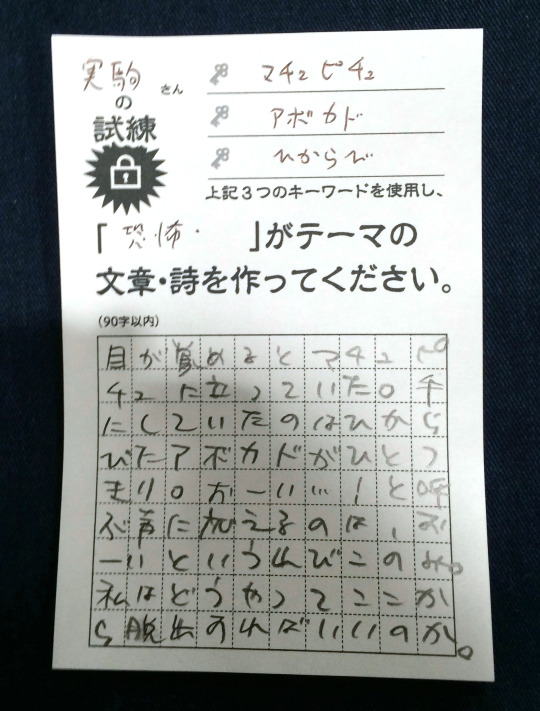 実駒さん
の
試練
マチュピチュ
アボカド
ひからび
上記3つのキーワードを使用し、
「恐怖・」がテーマの
文章・詩を作ってください。
(90字以内)
目が覚めるとマチュピ
チュに立っていた。手
にしていたのはひから
びたアボカドがひとつ
きり。おーい…!と呼
ぶ声に応えるのは、お
ーいというんびこのみ。
私はどうやってここか
ら脱出すればいいのか。